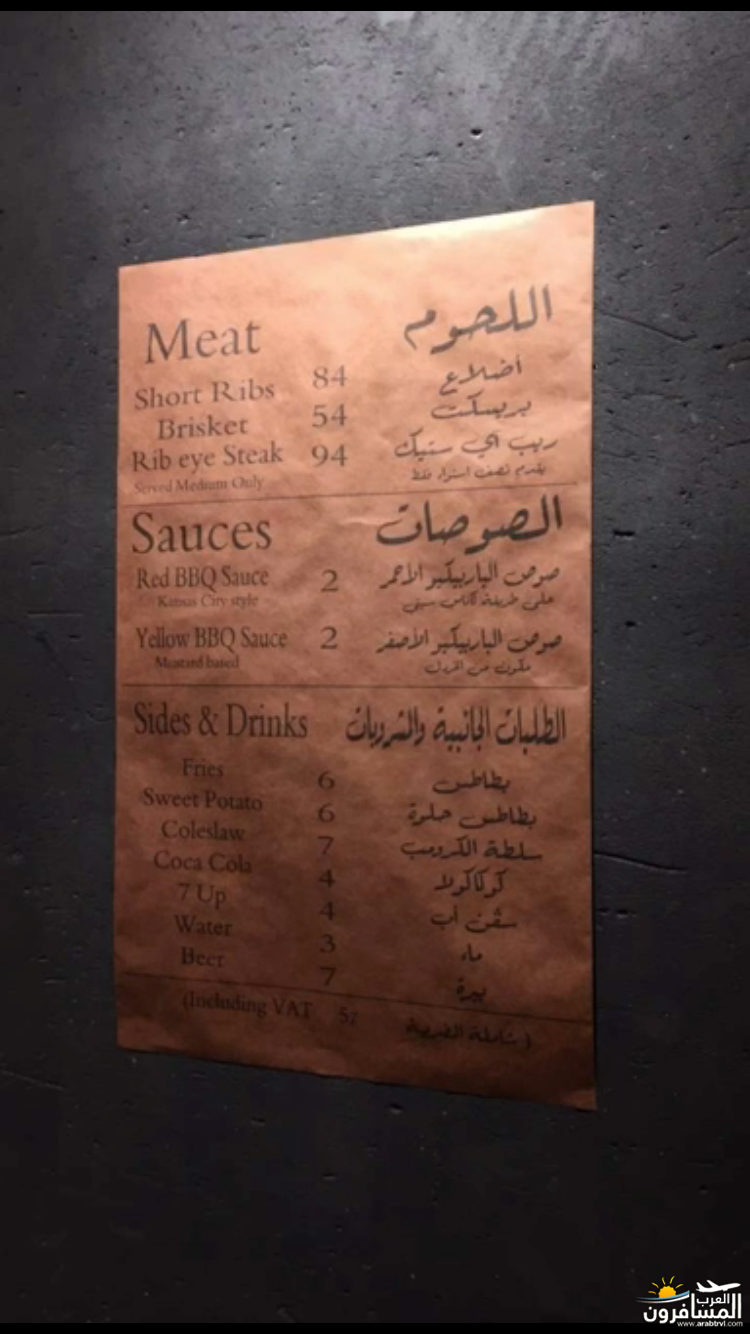 Meat اللحوم
Short Ribs 84 أضلاع
Brisket 54 بريسكت
Rib eye Steak 94 ريب آي ستيك
Served Medium Only يقدم نصف استواء فقط
Sauces الصوصات
Red BBQ Sauce 2 صوص الباربيكيو الأحمر
Kansas City style على طريقة كانساس سيتي
Yellow BBQ Sauce 2 صوص الباربيكيو الأصفر
Mustard based مكون من الخردل
Sides & Drinks الطلبات الجانبية والمشروبات
Fries 6 بطاطس
Sweet Potato 6 بطاطس حلوة
Coleslaw 7 سلطة الكرومب
Coca Cola 4 كوكاكولا
7 Up 4 سڤن أب
Water 3 ماء
Beer 7 بيرة
(Including VAT 5% (شاملة الضريبة
العرب
المسافرون
www.arabtrvl.com